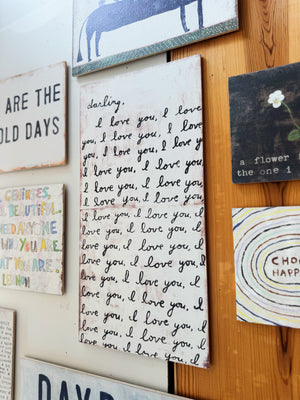 ARE THE
OLD DAYS
darling,
I love you, I love
you, I love you, I love
you, I love you, I love
you, I love you, I love
you, I love you, I
love you, I love you, I
love you, I love you, I
love you, I love you,
I love you, I love you,
I love you, I love you,
I love you, I love you, I
love you, I love you, I
love you, I love you, I
love you, I love you, I
love you, I love you, I
love you, I love you, I
a flower
the one i
BEAUTIFUL.
NEED ANYONE
WHO YOU ARE.
WHAT YOU ARE.
LENNON
CHOO
HAPP
DAY